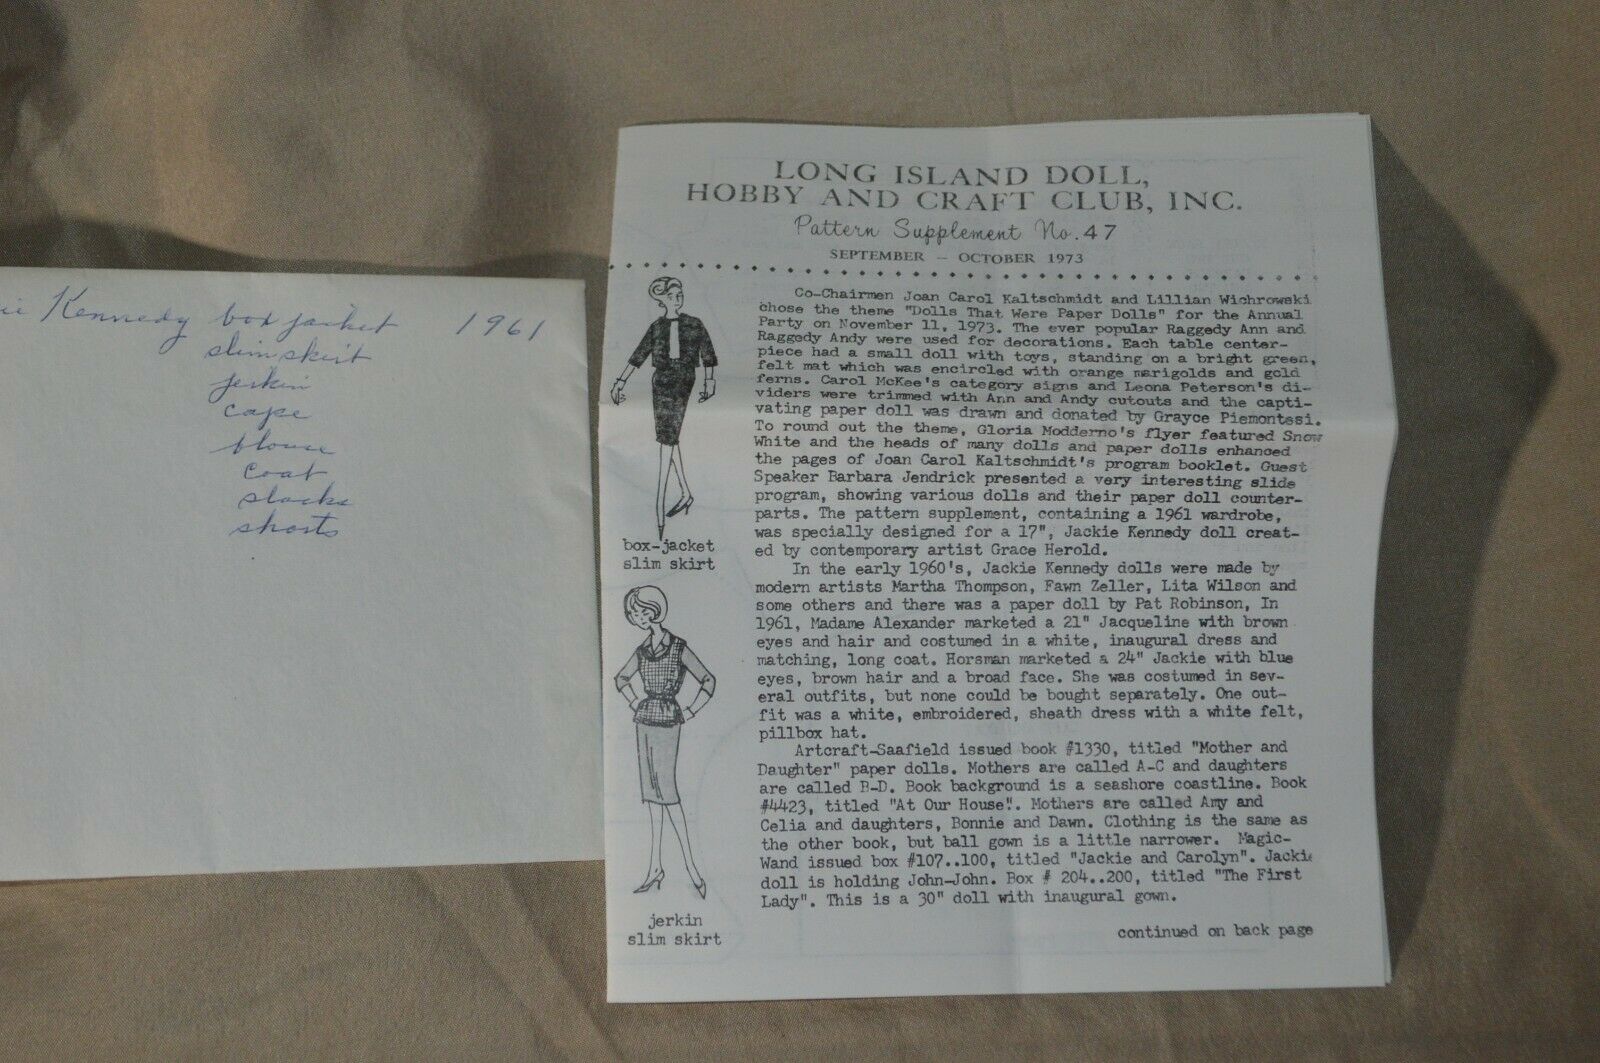 Kennedy box jacket 1961
slim skirt
jerkin
cape
blouse
coat
slacks
shorts
LONG ISLAND DOLL,
HOBBY AND CRAFT CLUB, INC.
Pattern Supplement No. 47
SEPTEMBER - OCTOBER 1973
Co-Chairmen Joan Carol Kaltschmidt and Lillian Wichrowski
chose the theme "Dolls That Were Paper Dolls" for the Annual
Party on November 11, 1973. The ever popular Raggedy Ann and
Raggedy Andy were used for decorations. Each table center-
piece had a small doll with toys, standing on a bright green,
felt mat which was encircled with orange marigolds and gold
ferns. Carol McKee's category signs and Leona Peterson's di-
viders were trimmed with Ann and Andy cutouts and the capti-
vating paper doll was drawn and donated by Grayce Piemontesi.
To round out the theme, Gloria Modderno's flyer featured Snow
White and the heads of many dolls and paper dolls enhanced
the pages of Joan Carol Kaltschmidt's program booklet. Guest
Speaker Barbara Jendrick presented a very interesting slide
program, showing various dolls and their paper doll counter-
parts. The pattern supplement, containing a 1961 wardrobe,
was specially designed for a 17", Jackie Kennedy doll creat-
ed by contemporary artist Grace Herold.
In the early 1960's, Jackie Kennedy dolls were made by
modern artists Martha Thompson, Fawn Zeller, Lita Wilson and
some others and there was a paper doll by Pat Robinson, In
1961, Madame Alexander marketed a 21" Jacqueline with brown
eyes and hair and costumed in a white, inaugural dress and
matching, long coat. Horsman marketed a 24" Jackie with blue
eyes, brown hair and a broad face. She was costumed in sev-
eral outfits, but none could be bought separately. One out-
fit was a white, embroidered, sheath dress with a white felt,
pillbox hat.
Artcraft-Saafield issued book #1330, titled "Mother and
Daughter" paper dolls. Mothers are called A-C and daughters
are called B-D. Book background is a seashore coastline. Book
#4423, titled "At Our House". Mothers are called Amy and
Celia and daughters, Bonnie and Dawn. Clothing is the same as
the other book, but ball gown is a little narrower. Magic-
Wand issued box #107..100, titled "Jackie and Carolyn". Jackie
doll is holding John-John. Box # 204..200, titled "The First
Lady". This is a 30" doll with inaugural gown.
continued on back page
box-jacket
slim skirt
jerkin
slim skirt